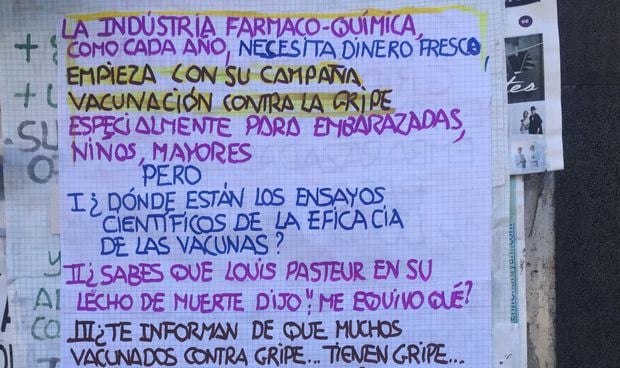 LA INDÚSTRIA FARMACO-QUÍMICA,
COMO CADA AÑO, NECESITA DINERO FRESCO,
EMPIEZA CON SU CAMPAÑA
VACUNACIÓN CONTRA LA GRIPE
ESPECIALMENTE PARA EMBARAZADAS,
NIÑOS, MAYORES
PERO
I ¿ DÓNDE ESTÁN LOS ENSAYOS
CIENTÍFICOS DE LA EFICACIA
DE LAS VACUNAS?
II ¿SABES QUE LOUIS PASTEUR EN SU
LECHO DE MUERTE DIJO "ME EQUIVOQUÉ?
III ¿TE INFORMAN DE QUE MUCHOS
VACUNADOS CONTRA GRIPE... TIENEN GRIPE...